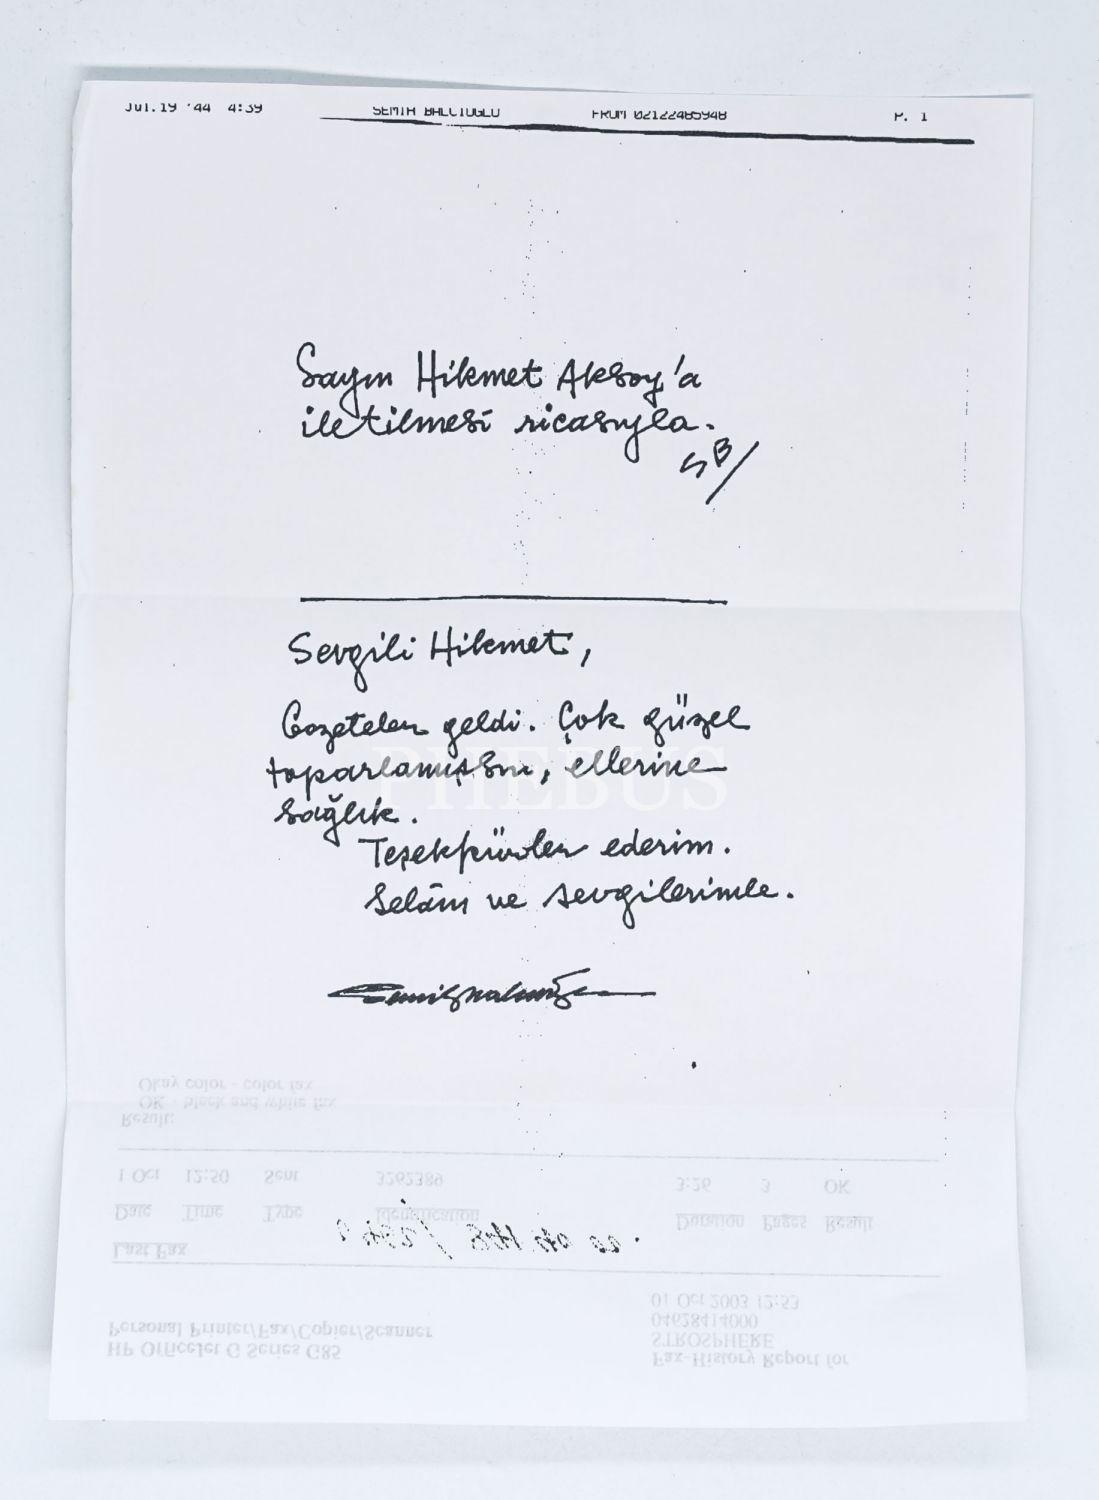 Jul.19 '44 4:39 SEMIH BALCIOGLU FROM 02122485948 P. 1
Sayın Hikmet Aksoy'a
iletilmesi ricasıyla.
SB/
Sevgili Hikmet,
Gazeteler geldi. Çok güzel
toparlamışsın, ellerine
sağlık.
Teşekkürler ederim.
Selâm ve sevgilerimle.
PHEBUS
Okay color - color fax
OK - black and white fax
Result:
1 Oct 12:50 Sent 3262389 3:26 3 OK
Date Time Type Identification Duration Pages Result
Last Fax
01 Oct 2003 12:53
04628414000
STROSPHERE
Fax-History Report for
Personal Printer/Fax/Copier/Scanner
HP OfficeJet G Series G85